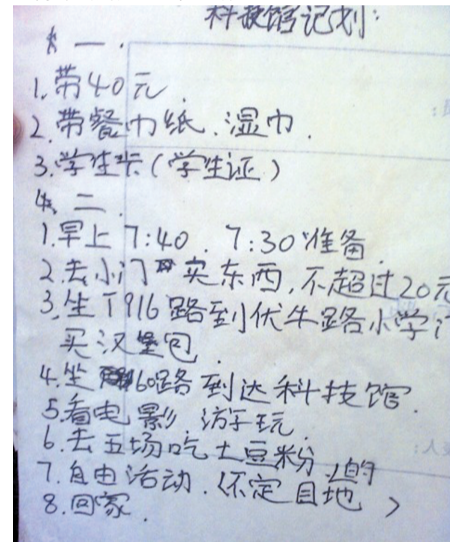 科技馆记划:
一.
1.带40元
2.带餐巾纸.湿巾.
3.学生卡(学生证)
二.
1.早上7:40.7:30准备.
2.去小门买东西,不超过20元
3.坐T916路到伏牛路小学
买汉堡包.
4.坐60路到达科技馆.
5.看电影 游玩.
6.去五场吃土豆粉.
7.自由活动.(不定目的地)
8.回家.